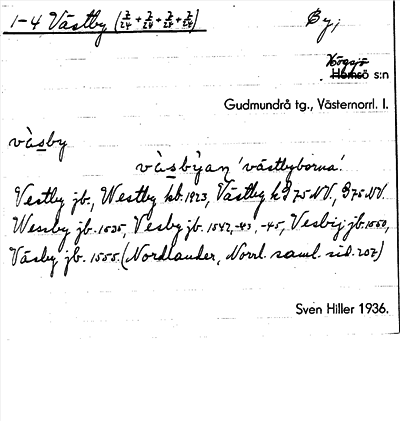 1-4 Västby (2/24 + 2/24 + 2/24 + 2/24) By,
Högsjö
Hemsö s:n
Gudmundrå tg., Västernorrl. l.
vàsby
vàsbyan 'västbyborna'.
Vestby jb., Westby kb. 1923, Västby k G 75 NV., G 75 NV.
Wessby jb. 1535, Vesby jb. 1542, -43, -45, Vesbij jb. 1550,
Väsby jb. 1555. (Nordlander, Norrl. saml. sid. 207)
Sven Hiller 1936.